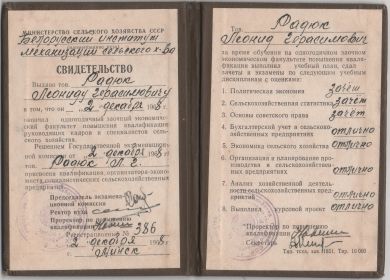 МИНИСТЕРСТВО СЕЛЬСКОГО ХОЗЯЙСТВА СССР
Белорусский институт
механизации сельского х-ва
СВИДЕТЕЛЬСТВО
Выдано тов. Радюк
Леониду Герасимовичу
в том, что он 2 декабря 1968 г.
закончил одногодичный заочный экономический
факультет повышения квалификации
руководящих кадров и специалистов сельского
хозяйства.
Решением Государственной экзаменационной
комиссии от 2 декабря 1968 г.
Радюк Л. Г.
присвоена квалификация организатора-экономиста
социалистических сельскохозяйственных
предприятий.
Председатель экзаменационной
комиссии
Ректор вуза
Проректор по повышению
квалификации
Регистрационный № 386
2 декабря 1968 г.
г. Минск
Тов. Радюк
Леонид Герасимович
за время обучения на одногодичном заочном
экономическом факультете повышения квалификации
выполнил учебный план, сдал
зачеты и экзамены по следующим учебным
дисциплинам с оценками:
1. Политическая экономия зачет
2. Сельскохозяйственная статистика зачет
3. Основы советского права зачет
4. Бухгалтерский учет в сельскохозяйственных
предприятиях отлично
5. Экономика сельского хозяйства отлично
6. Организация и планирование производства
в сельскохозяйственных
предприятиях отлично
7. Анализ хозяйственной деятельности
сельскохозяйственных предприятий
отлично
8. Выполнил курсовой проект отлично
Проректор по повышению
квалификации
Секретарь